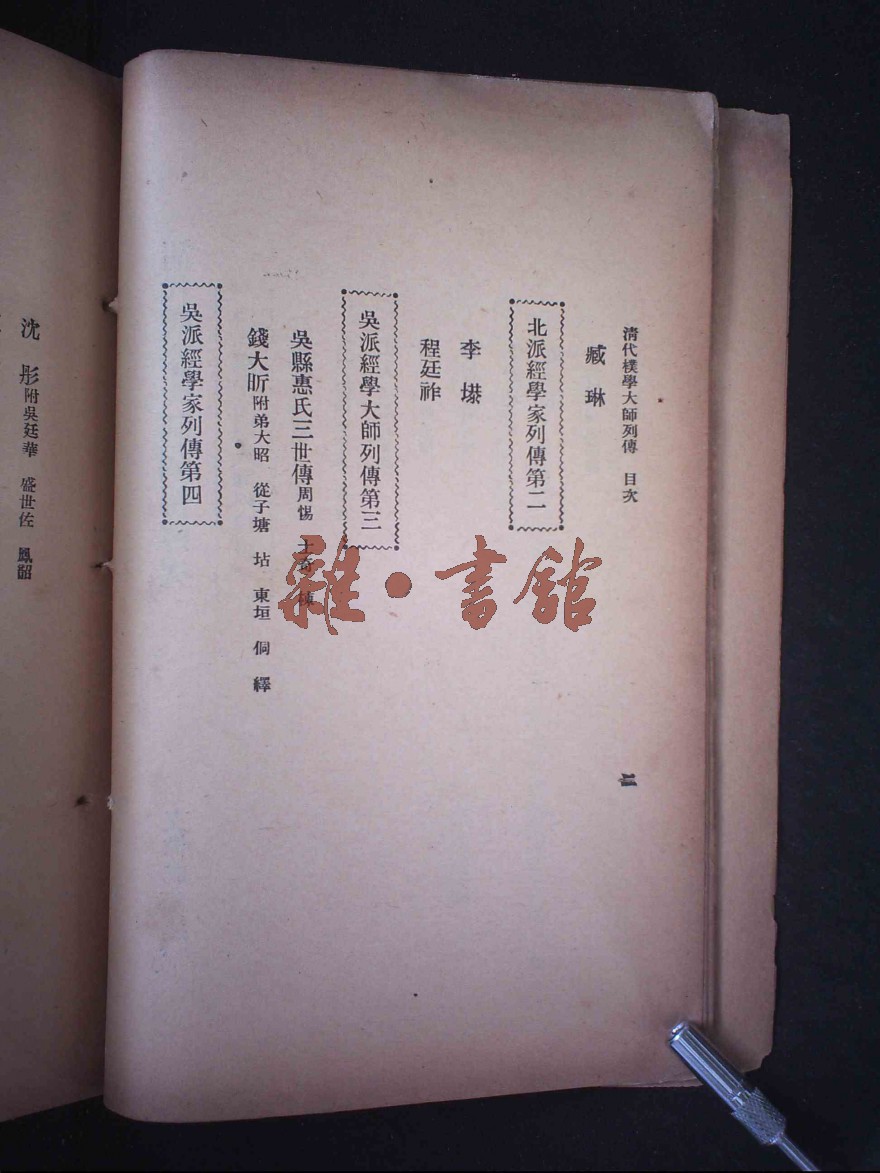 清代樸學大師列傳 目次
二
臧琳
北派經學家列傳第二
李塨
程廷祚
吳派經學大師列傳第三
吳縣惠氏三世傳周惕 士奇 棟
錢大昕附弟大昭 從子塘 坫 東垣 侗 繹
吳派經學家列傳第四
沈彤附吳廷華 盛世佐
雜·書館